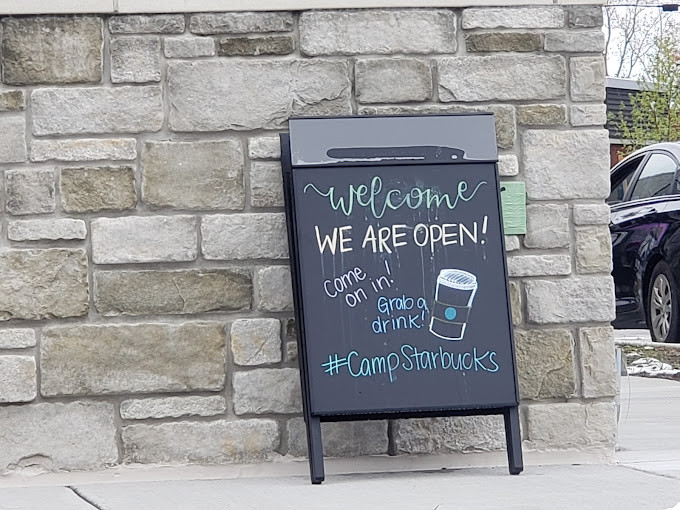 welcome
WE ARE OPEN!
Come
on in!
Grab a
drink!
#CampStarbucks